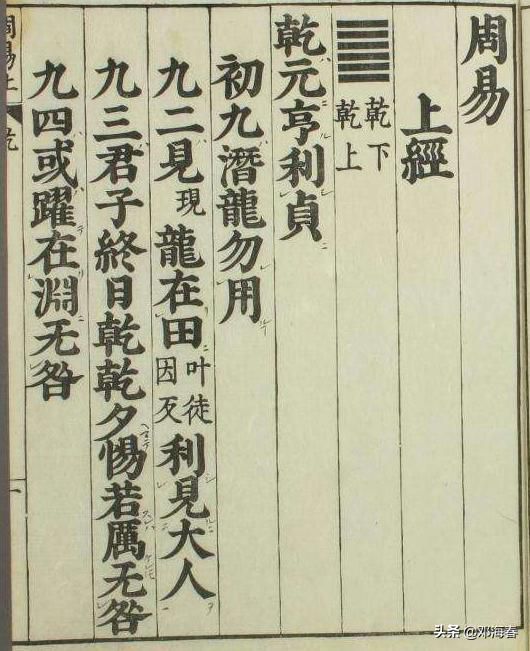 周易
上經
乾下
乾上
乾元亨利貞
初九潛龍勿用
九二見現龍在田叶徒因反利見大人
九三君子終日乾乾夕惕若厲无咎
九四或躍在淵无咎
周易上
乾
一
头条 @邓海春